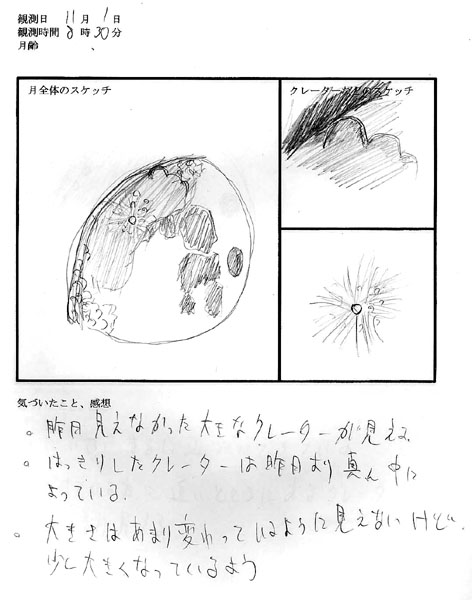 観測日 11月 1日
観測時間 8時 30分
月齢
月全体のスケッチ
クレーターなどのスケッチ
気づいたこと、感想
。昨日見えなかった大きなクレーターが見える
。はっきりしたクレーターは昨日より真ん中に
よっている
。大きさはあまり変わっているように見えないけど、
少し大きくなっているよう